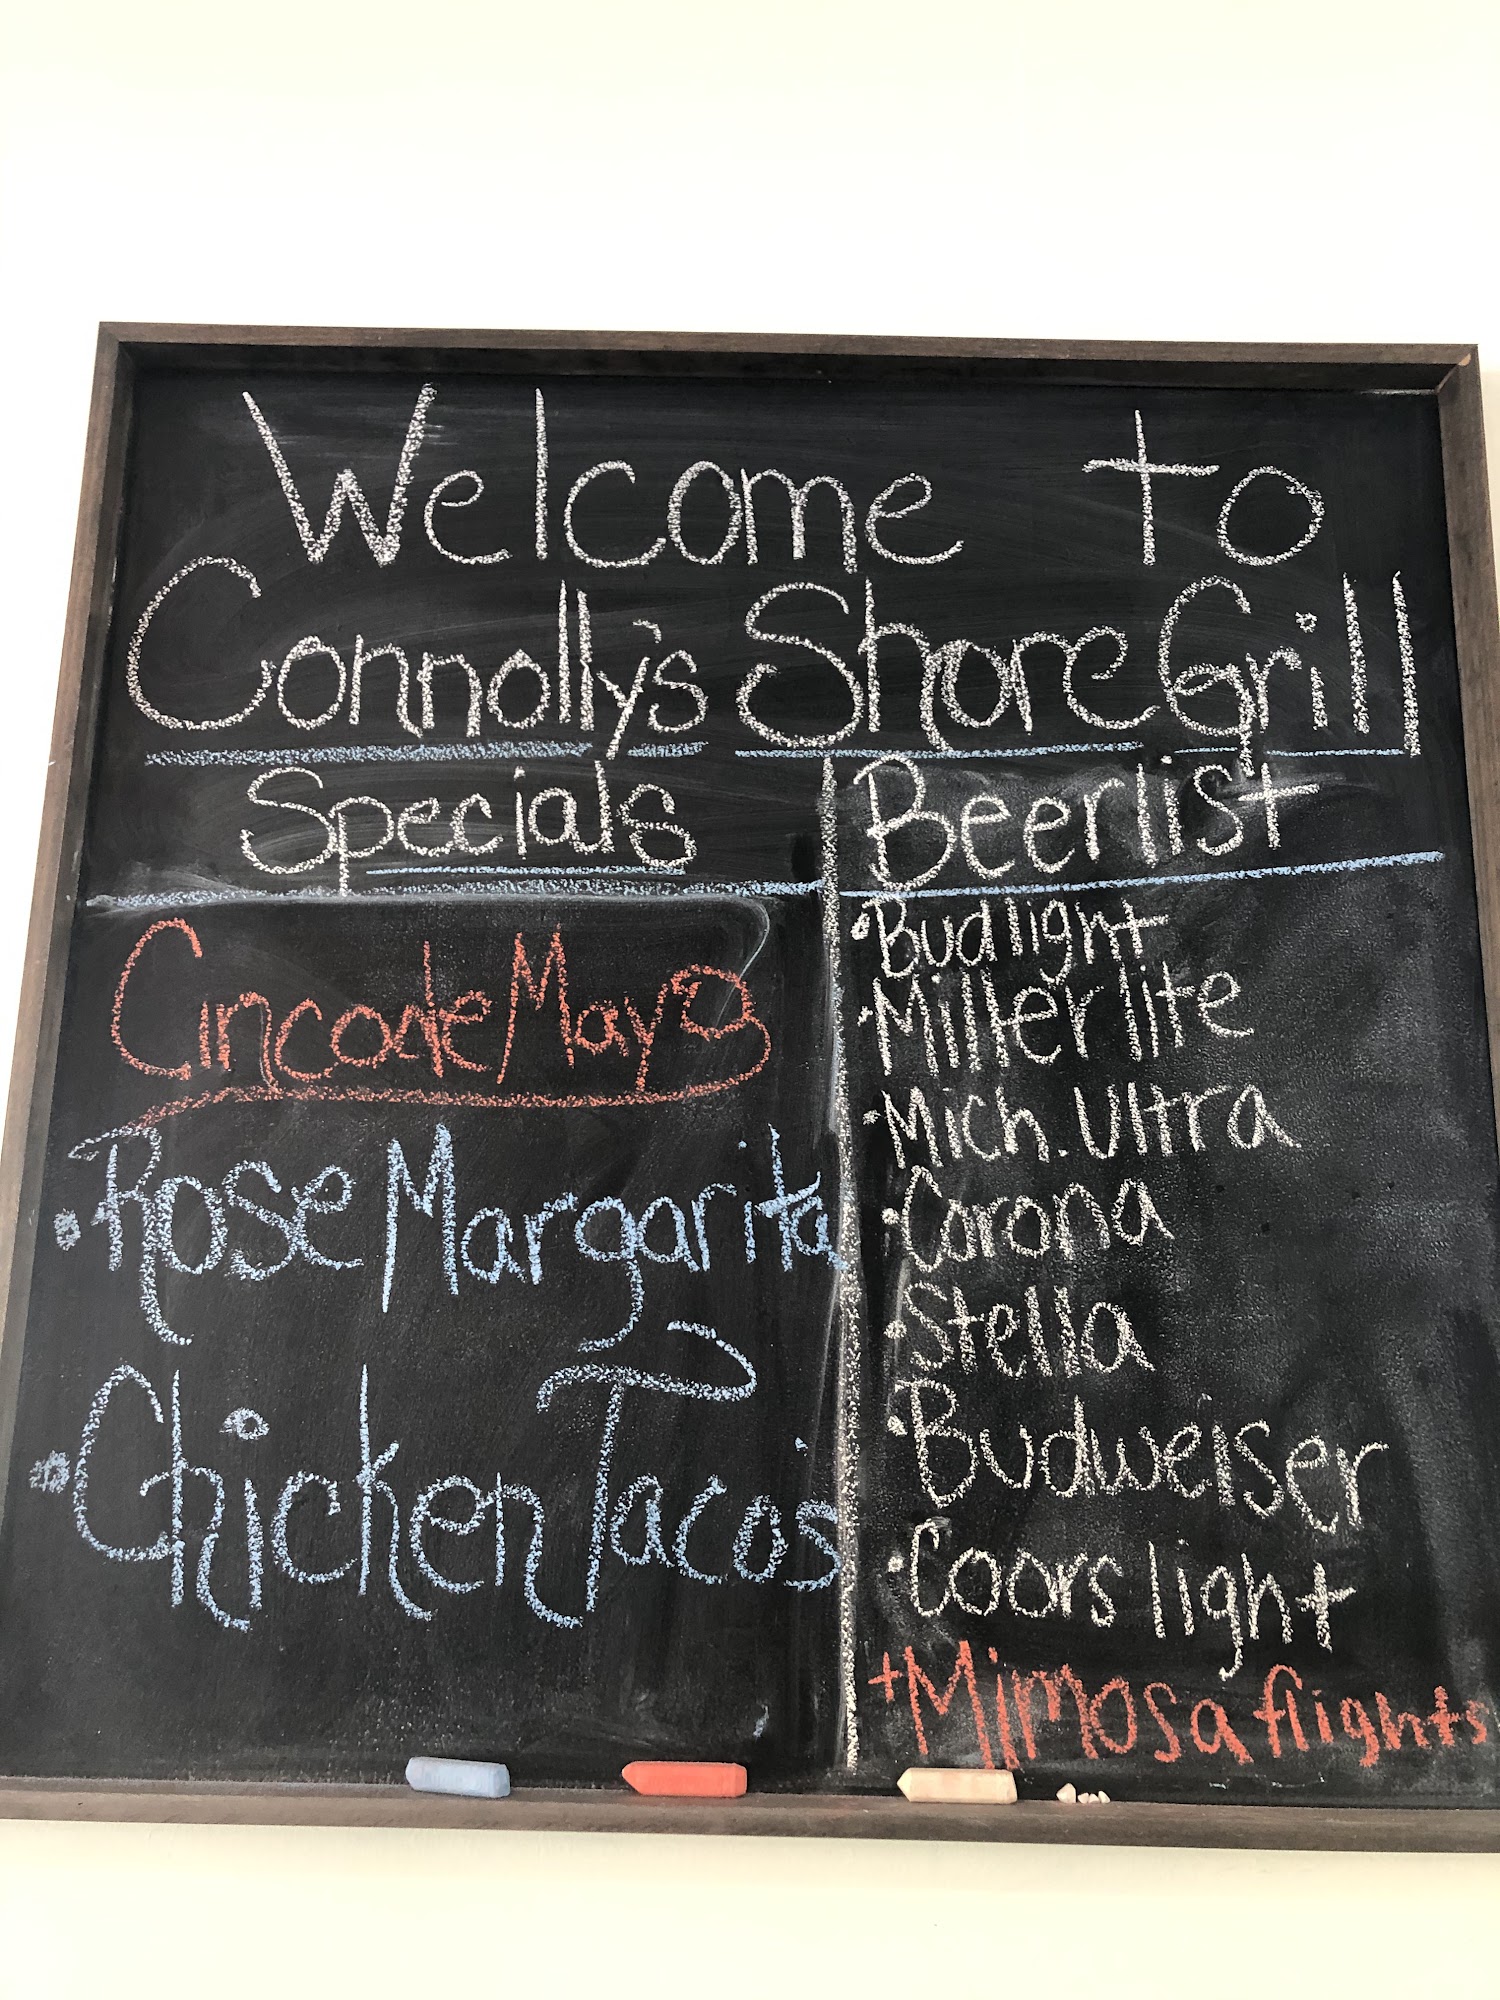 Welcome to
Connolly's Shore Grill
Specials
Cinco de Mayo
• Rose Margarita
• Chicken Taco's
Beerlist
• Bud light
• Miller lite
• Mich. Ultra
• Corona
• Stella
• Budweiser
• Coors light
+ Mimosa flights